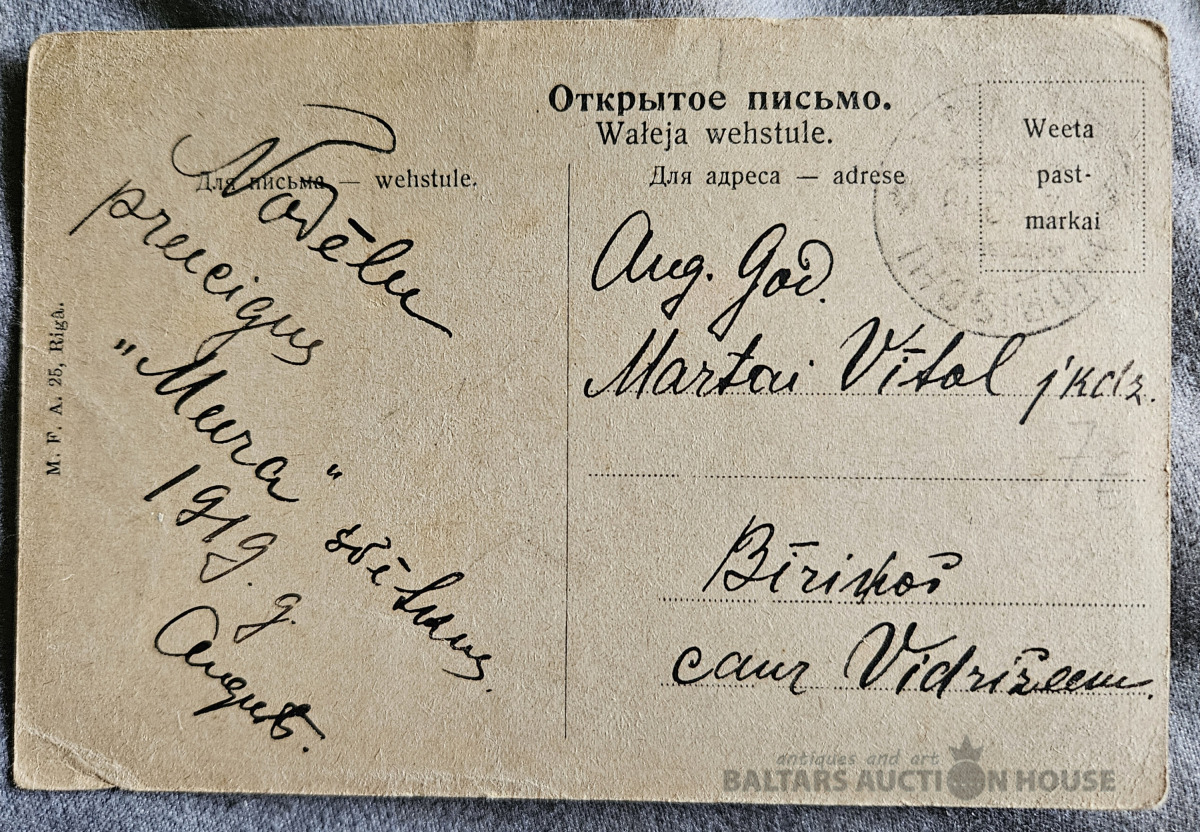 Открытое письмо.
Wałeja wehstule.
Для письма — wehstule.
Для адреса — adrese
Weeta
past-
markai
M. F. A. 25, Riga.
Novēlu
preecigus
„Meera“ svētkus.
1919. g.
Augusts.
Aug. God.
Martai Vītol jkdz.
Bīriņos
caur Vidrižeem.
antiques and art
BALTARS AUCTION HOUSE